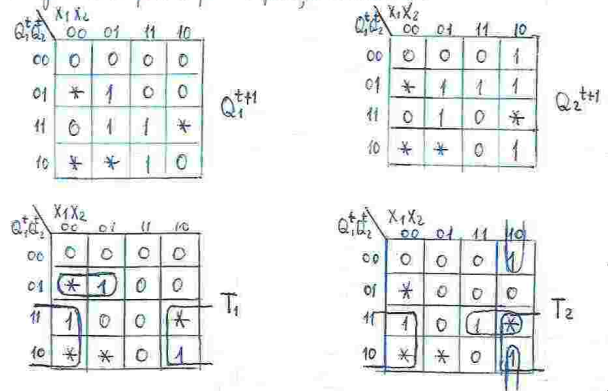 X₁X₂
Q₁ᵗQ₂ᵗ 00 01 11 10
00 0 0 0 0
01 * 1 0 0
11 0 1 1 *
10 * * 1 0
Q₁ᵗ⁺¹
X₁X₂
Q₁ᵗQ₂ᵗ 00 01 11 10
00 0 0 0 1
01 * 1 1 1
11 0 1 0 *
10 * * 0 1
Q₂ᵗ⁺¹
X₁X₂
Q₁ᵗQ₂ᵗ 00 01 11 10
00 0 0 0 0
01 * 1 0 0
11 1 0 0 *
10 * * 0 1
T₁
X₁X₂
Q₁ᵗQ₂ᵗ 00 01 11 10
00 0 0 0 1
01 * 0 0 0
11 1 0 1 *
10 * * 0 1
T₂